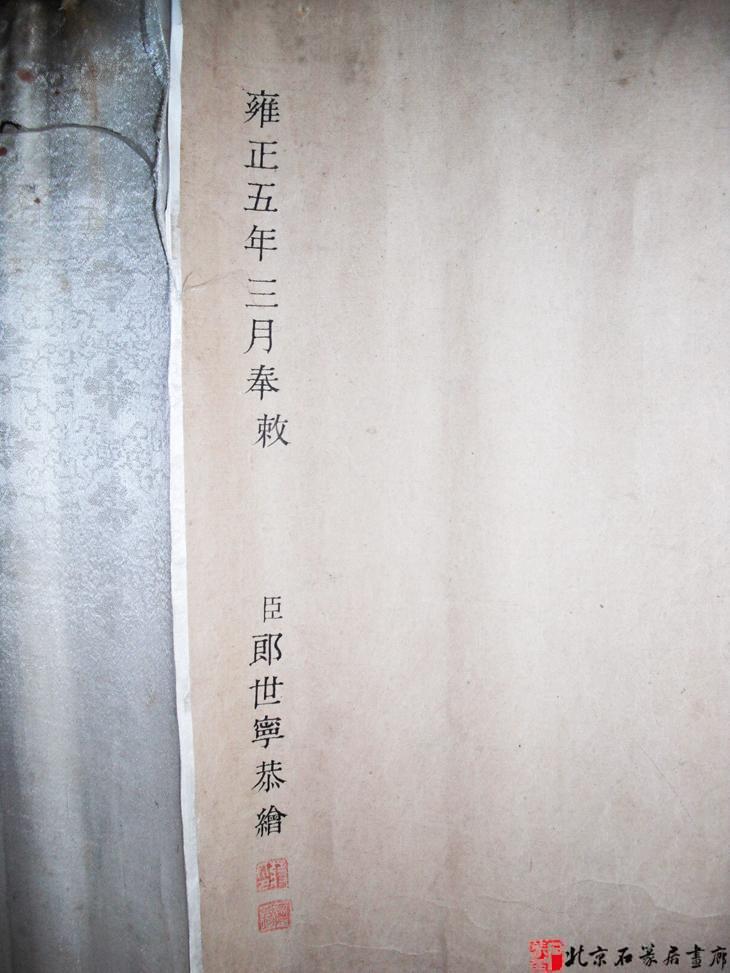 雍正五年三月奉敕
臣郎世寧恭繪
北京石篆居畫廊